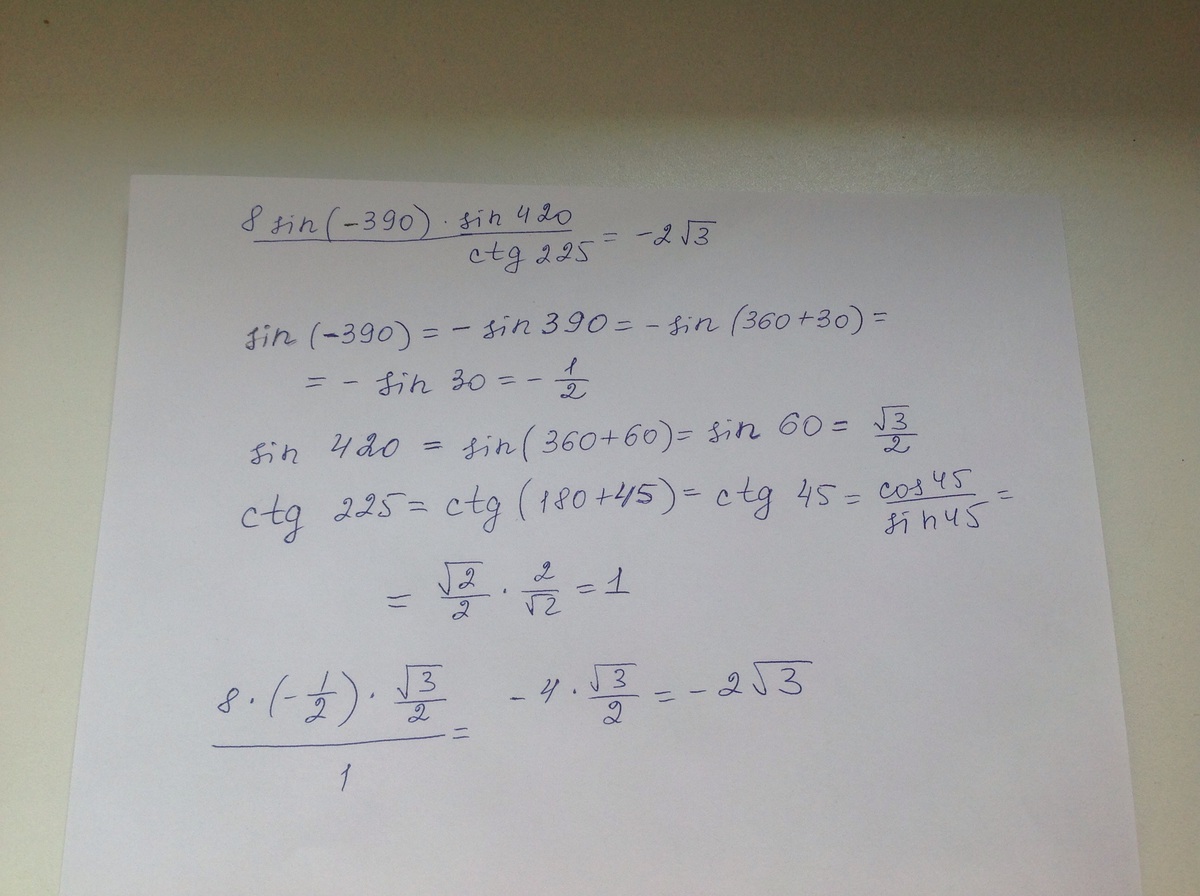 8 sin(-390) · sin 420 / ctg 225 = -2√3
sin (-390) = - sin 390 = - sin (360+30) =
= - sin 30 = - 1/2
sin 420 = sin (360+60) = sin 60 = √3/2
ctg 225 = ctg (180+45) = ctg 45 = cos 45 / sin 45 =
= √2/2 · 2/√2 = 1
8 · (-1/2) · √3/2 / 1 = -4 · √3/2 = -2√3